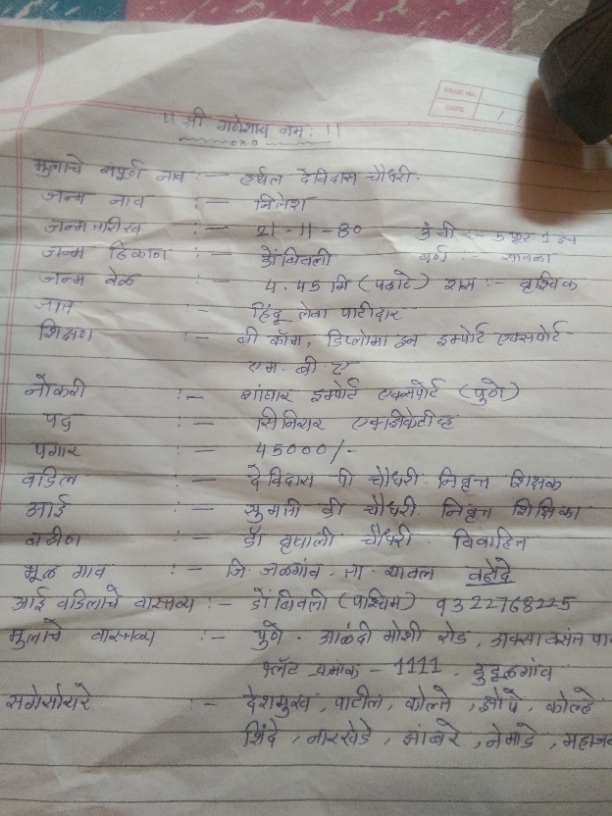 PAGE NO.
DATE / /
।। श्री गणेशाय नमः ।।
मुलाचे संपूर्ण नाव :- हर्षल देविदास चौधरी.
जन्म नाव :- मिलेश
जन्म तारीख :- 21-11-80 उंची :- 5 फूट 1 इंच
जन्म ठिकाण :- डोंबिवली वर्ण :- सावळा
जन्म वेळ :- 4.45 मि (पहाटे) रास :- वृश्चिक
जात :- हिंदू लेवा पाटीदार
शिक्षण :- बी कॉम, डिप्लोमा इन इम्पोर्ट एक्सपोर्ट
एम. बी. ए
नोकरी :- इम्पोर्ट एक्सपोर्ट (पुणे)
पद :- सिनियर एक्झिकेटीव्ह
पगार :- 45000/-
वडिल :- देविदास पी चौधरी. निवृत्त शिक्षक
आई :- सुमती डी चौधरी. निवृत्त शिक्षिका
बहीण :- डॉ वृषाली चौधरी. विवाहित
मूळ गाव :- जि. जळगांव. ता. यावल
आई वडिलांचे वास्तव्य :- डोंबिवली (पश्चिम) 9322768225
मुलाचे वास्तव्य :- पुणे. आळंदी मोशी रोड,
फ्लॅट क्रमांक - 1111. डुडूळगांव
सगेसोयरे :- देशमुख, पाटील, कोल्ते, झोपे, कोल्हे
शिंदे, नारखेडे, झांबरे, नेमाडे,